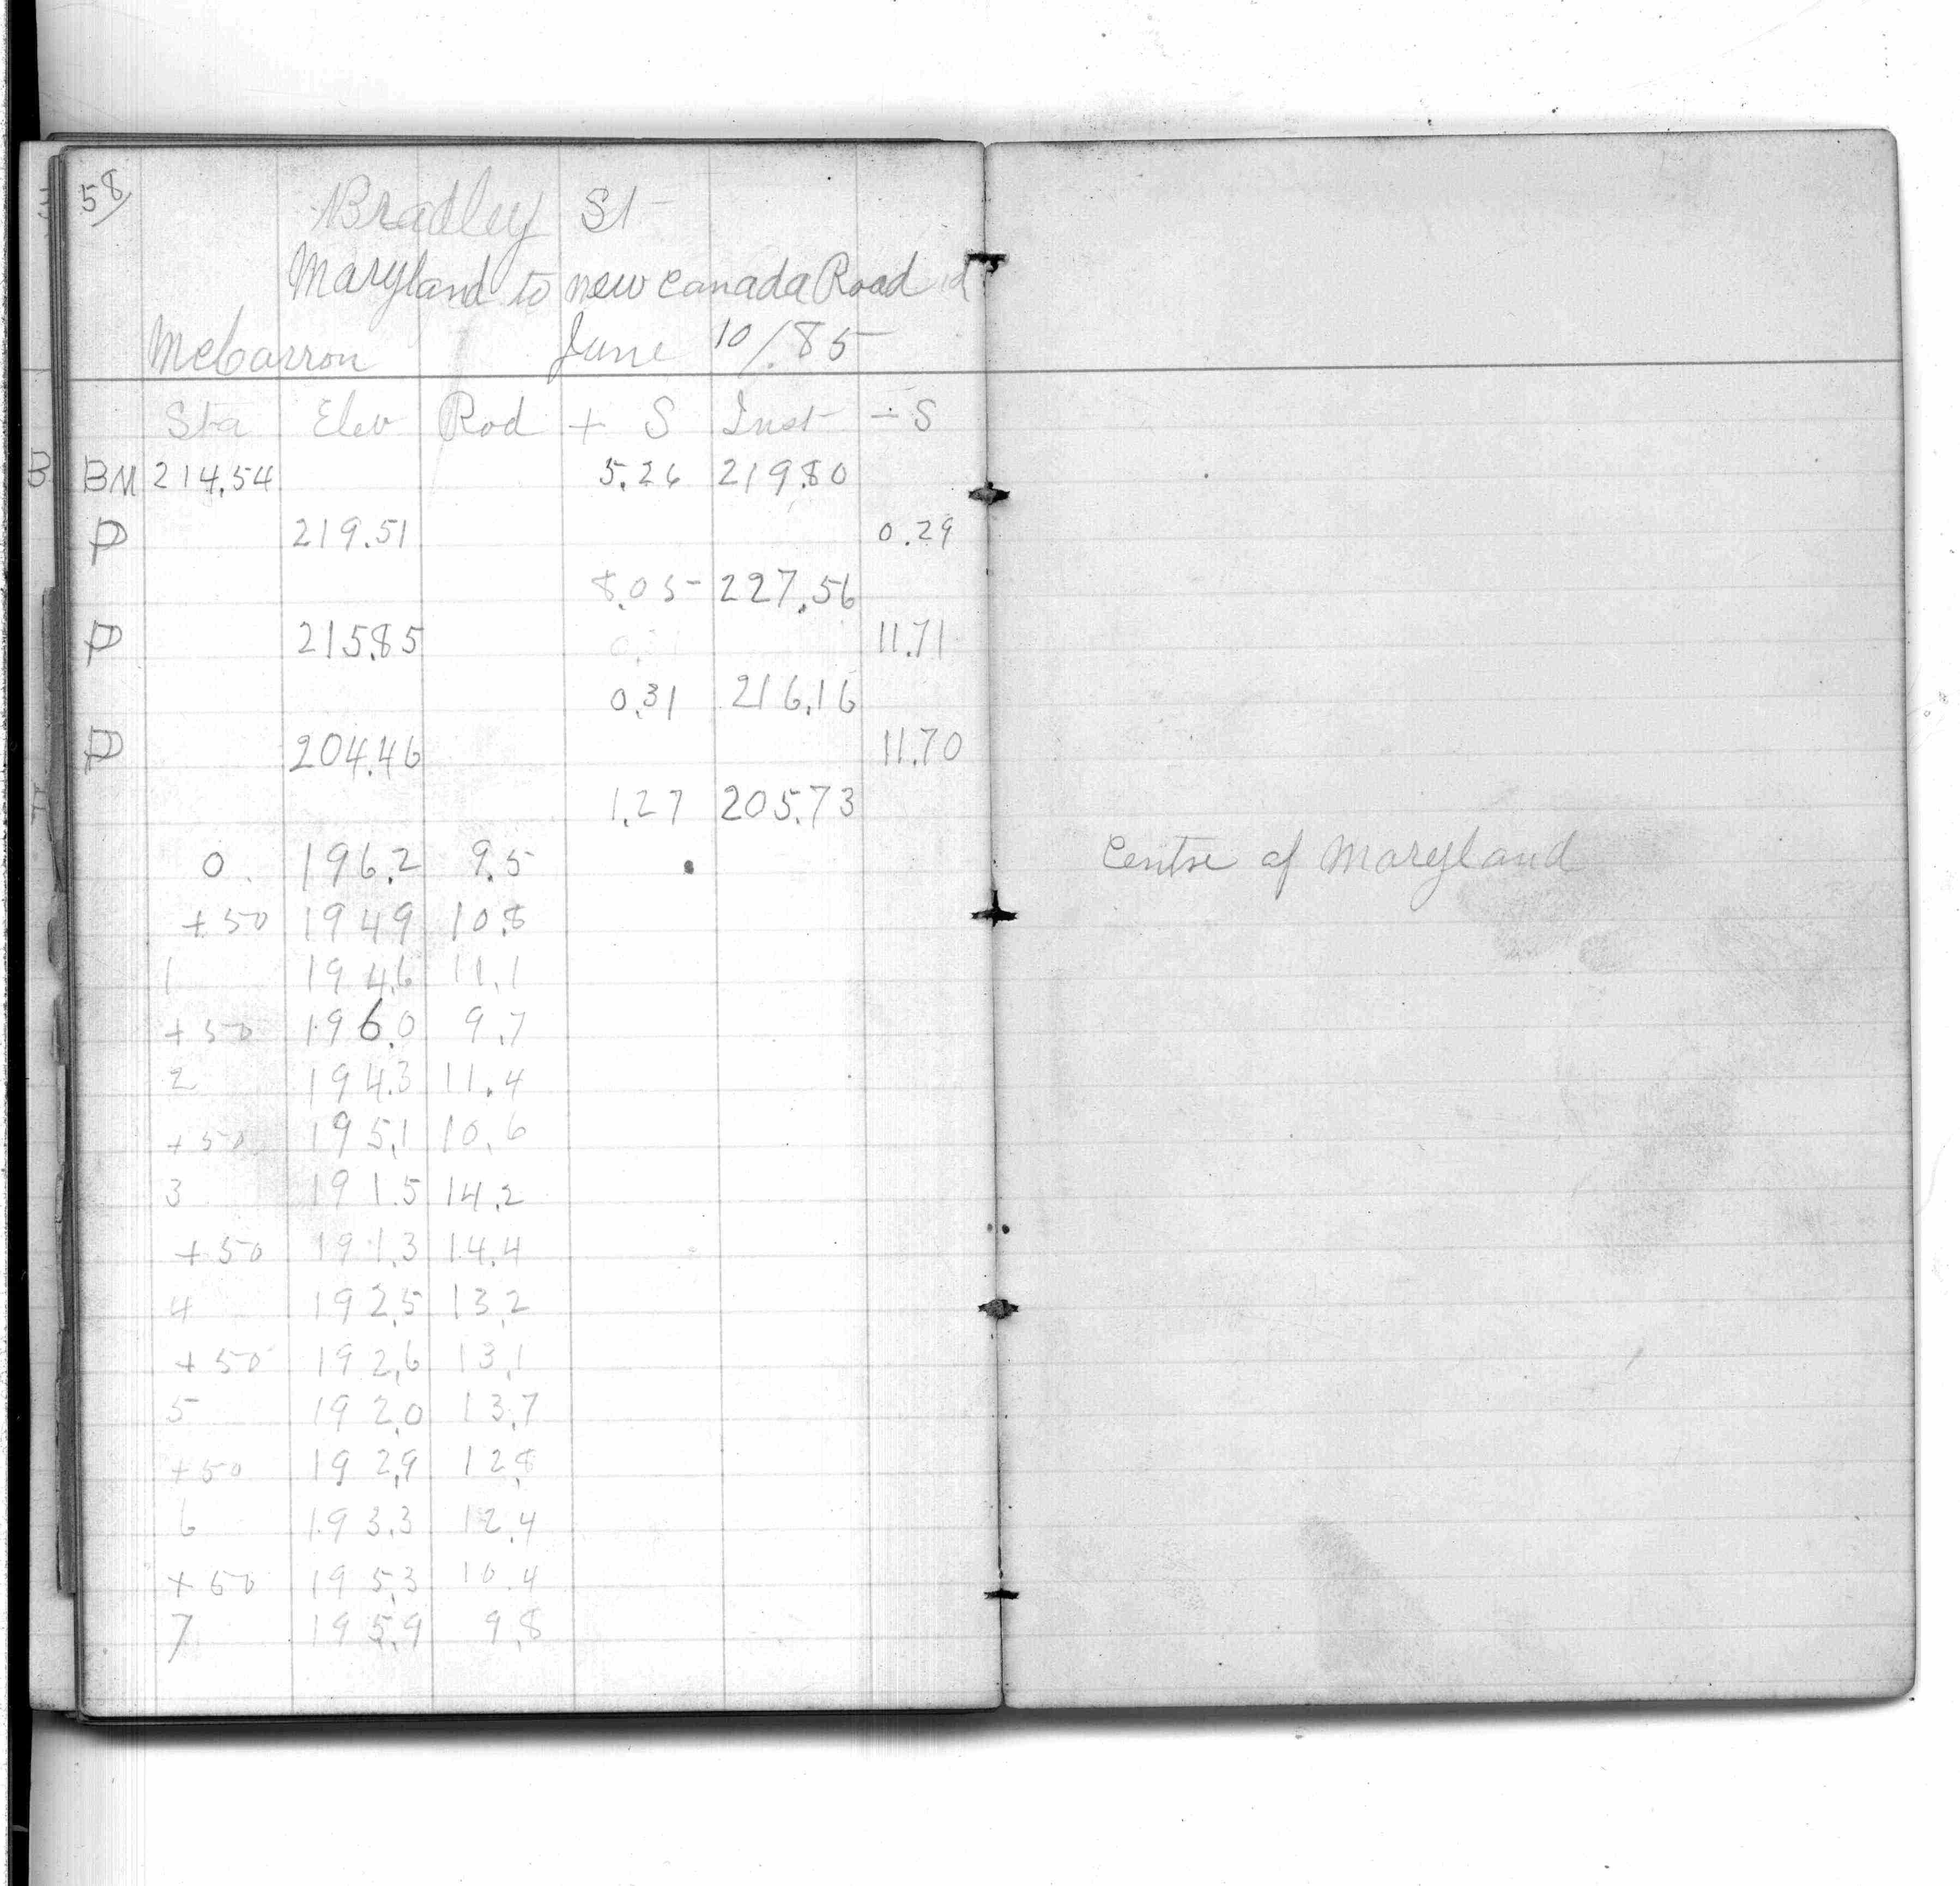 58
Bradley St
Maryland to new Canada Road
McCarron June 10/85
Sta Elev Rod + S Inst - S
BM 214.54 5.26 219.80
P 219.51 0.29
8.05 227.56
P 215.85 11.71
0.31 216.16
P 204.46 11.70
1.27 205.73
0 196.2 9.5 Centre of Maryland
+50 194.9 10.8
1 194.6 11.1
+50 196.0 9.7
2 194.3 11.4
+50 195.1 10.6
3 191.5 14.2
+50 191.3 14.4
4 192.5 13.2
+50 192.6 13.1
5 192.0 13.7
+50 192.9 12.8
6 193.3 12.4
+50 195.3 10.4
7 195.9 9.8